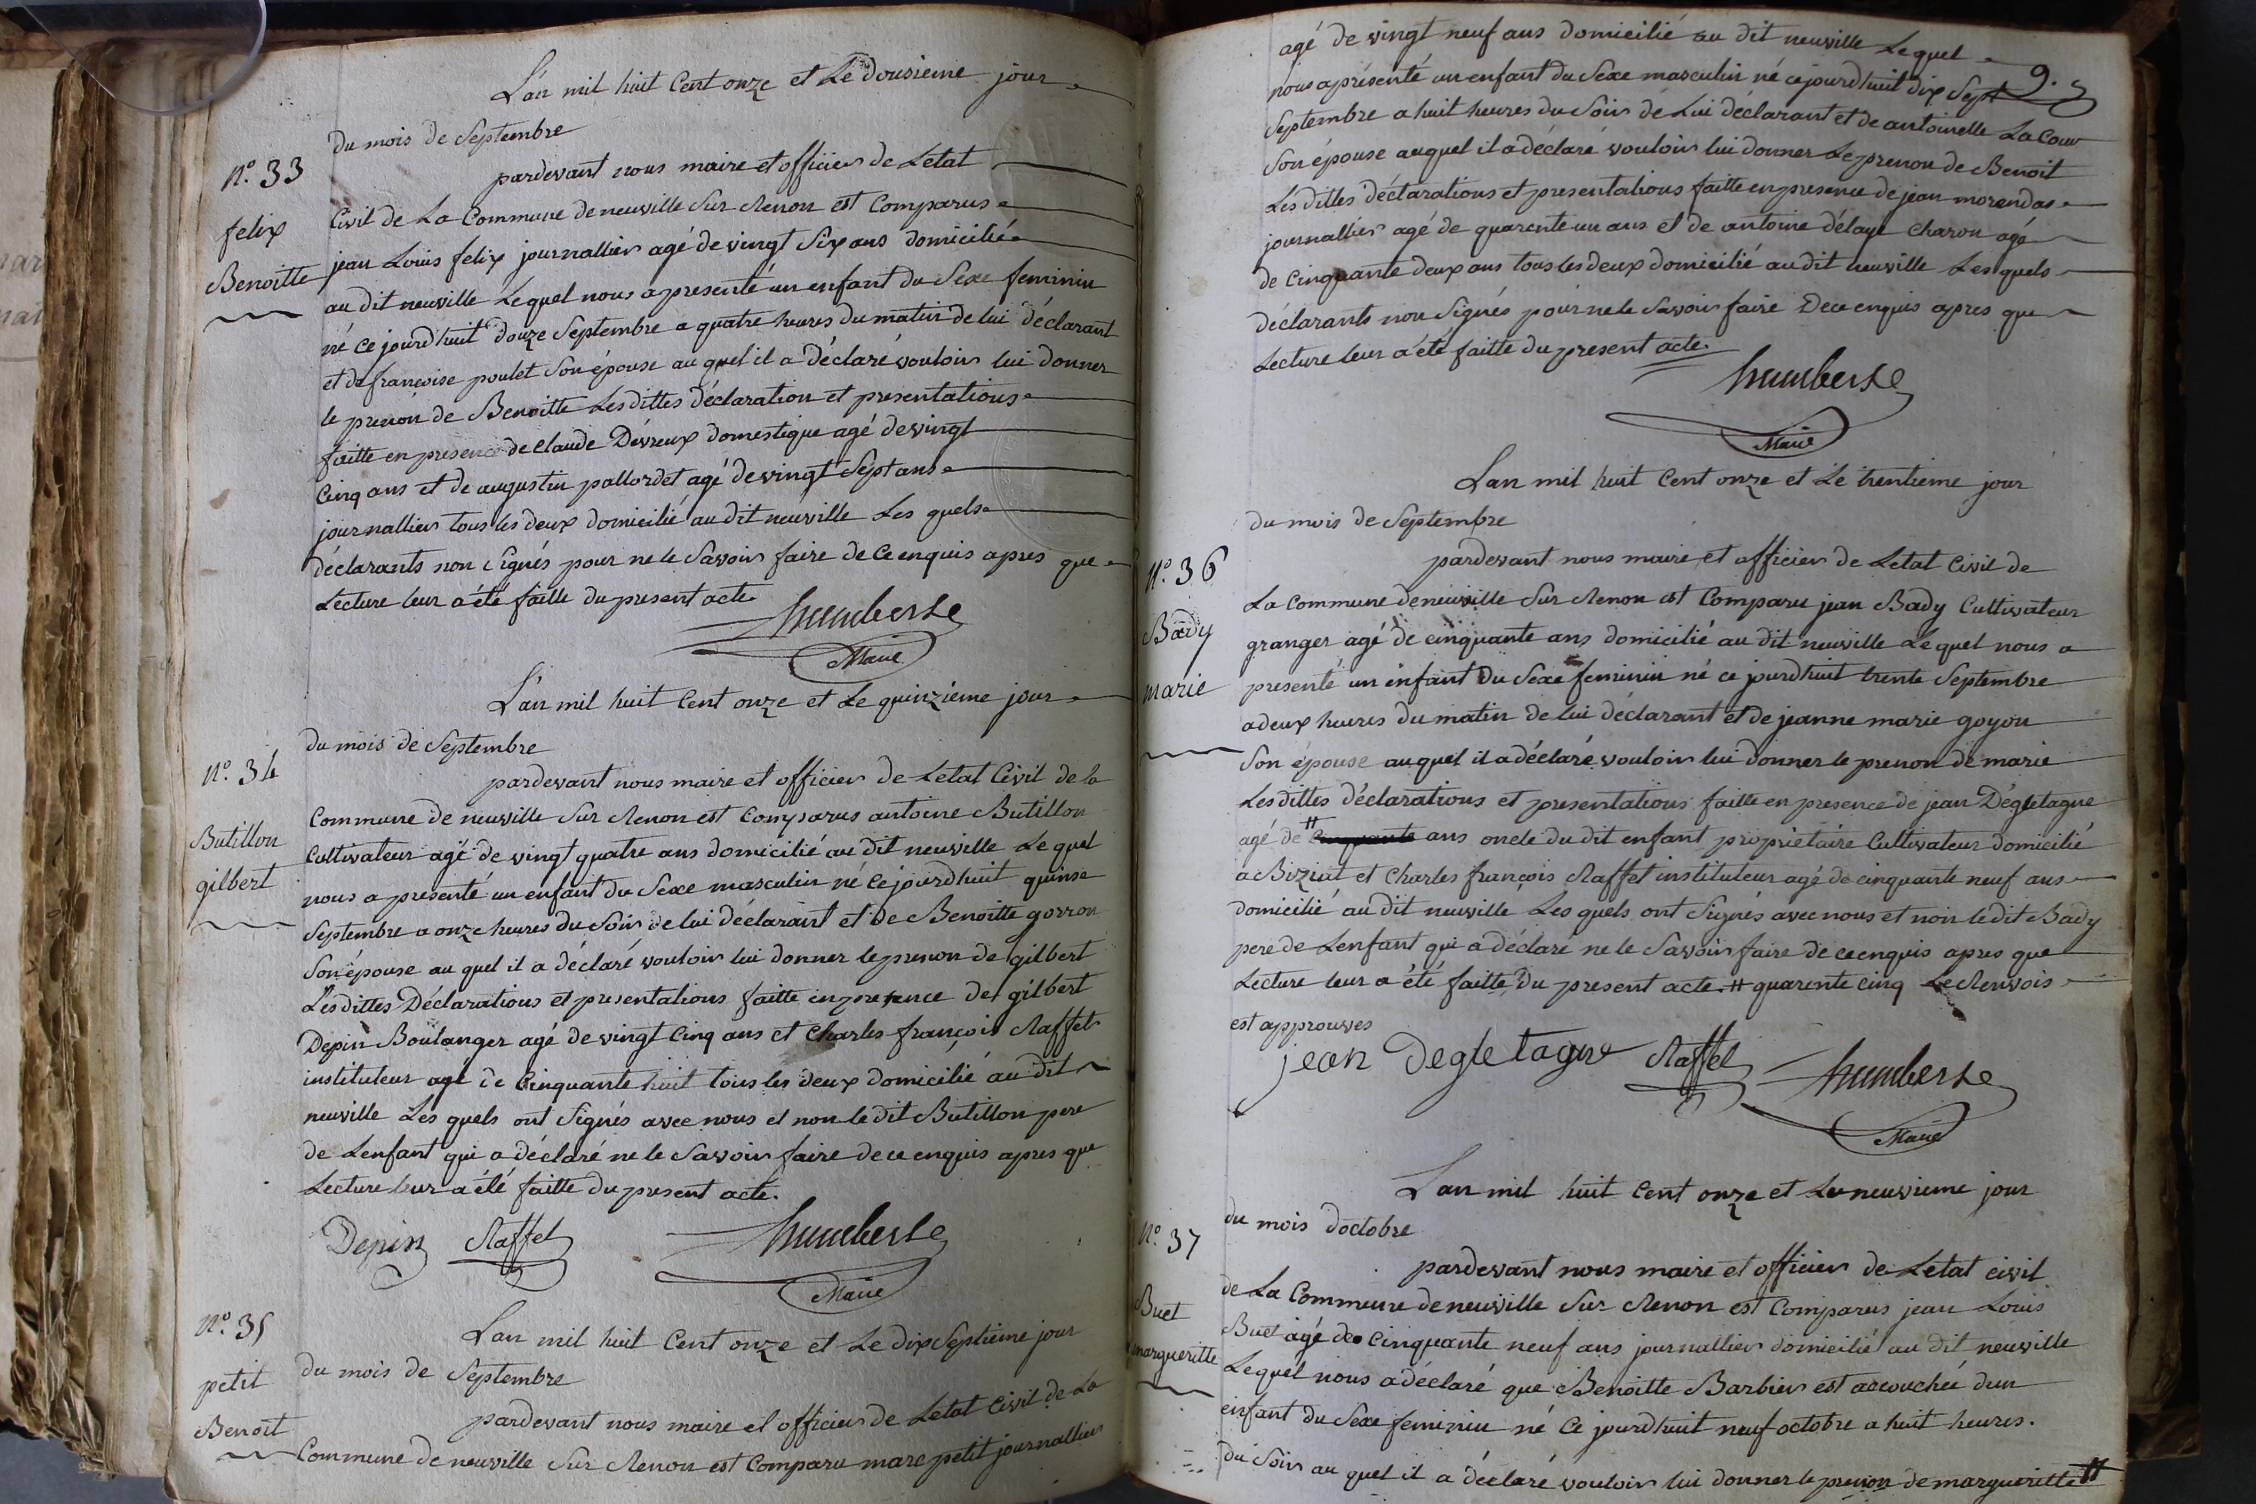 L'an mil huit Cent onze et Le dousieme jour
du mois de Septembre
N.o 33
pardevant nous maire et officier de Letat
felix
Civil de La Commune de neuville Sur Renon est Comparus
Benoitte
jean Louis felix journallier agé de vingt Six ans domicilié
au dit neuville Lequel nous a presenté un enfant du Sexe feminin
né ce jourdhuit douze Septembre a quatre heures du matin de lui déclarant
et de francoise poulet Son épouse au quel il a déclaré vouloir lui donner
le prenon de Benoitte Lesdittes déclaration et presentations
faitte en presence de Claude Dévreux domestique agé de vingt
Cinq ans et de augustin pallordet agé de vingt Sept ans
journallier tous les deux domicilié au dit neuville Les quels
déclarants non Signés pour ne le Savoir faire de ce enquis apres que
Lecture leur a été faitte du present acte
humberse
Maire
L'an mil huit Cent onze et Le quinzieme jour
du mois de Septembre
N.o 34
pardevant nous maire et officier de Letat Civil de la
Butillon
Commune de neuville Sur Renon est Comparus antoine Butillon
gilbert
Cultivateur agé de vingt quatre ans domicilié au dit neuville Le quel
nous a presenté un enfant du Sexe masculin né Ce jourdhuit quinse
Septembre a onze heures du Soir de lui déclarant et de Benoitte gorron
Son épouse au quel il a déclaré vouloir lui donner le prenon de gilbert
Lesdittes Déclarations et presentations faitte en presence de gilbert
Depin Boulanger agé de vingt Cinq ans et Charles françois Raffet
instituteur agé de Cinquante huit tous les deux domicilié au dit
neuville Les quels ont Signés avec nous et non le dit Butillon pere
de Lenfant qui a déclaré ne le Savoir faire de ce enquis apres que
Lecture leur a été faitte du present acte.
Depin Raffet humberse
Maire
N.o 35
Lan mil huit Cent onze et Le dix Septieme jour
petit
du mois de Septembre
Benoit
pardevant nous maire et officier de Letat Civil de La
Commune de neuville Sur Renon est Comparu marc petit journallier
9.
agé de vingt neuf ans domicilié au dit neuville Le quel
nous apresenté un enfant du Sexe masculin né ce jourdhuit dix Sept
Septembre a huit heures du Soir de Lui déclarant et de antoinette La Cour
Son épouse auquel il a déclaré vouloir lui donner Le prenon de Benoit
Lesdittes déclarations et presentations faitte en presence de jean morandas
journallier agé de quarente un ans et de antoine délaye charon agé
de Cinquante deux ans tous les deux domicilié au dit neuville Les quels
déclarants non Signés pour ne le Savoir faire De ce enquis apres que
Lecture leur a été faitte du present acte.
humberse
Maire
Lan mil huit Cent onze et Le trentieme jour
du mois de Septembre
N.o 36
pardevant nous maire et officier de Letat Civil de
Bady
La Commune de neuville Sur Renon est Comparu jean Bady Cultivateur
granger agé de cinquante ans domicilié au dit neuville Le quel nous a
marie
presenté un enfant du Sexe feminin né ce jourdhuit trente Septembre
a deux heures du matin de lui déclarant et de jeanne marie goyon
Son épouse auquel il a déclaré vouloir lui donner le prenon de marie
Lesdittes déclarations et presentations faitte en presence de jean Dégletagne
agé de # Cinquante ans oncle du dit enfant propriétaire Cultivateur domicilié
a Biziat et Charles françois Raffet instituteur agé de cinquante neuf ans
domicilié au dit neuville Les quels ont Signés avec nous et non le dit Bady
pere de Lenfant qui a déclaré ne le Savoir faire de ce enquis apres que
Lecture leur a été faitte Du present acte # quarente cinq Le Renvois
est approuves
jean Degletagne Raffet humberse
Maire
Lan mil huit Cent onze et Le neuvieme jour
du mois doctobre
N.o 37
pardevant nous maire et officier de Letat civil
Buet
de La Commune de neuville Sur Renon est Comparus jean Louis
margueritte
Buet agé de Cinquante neuf ans journallier domicilié au dit neuville
Lequel nous a déclaré que Benoitte Barbier est accouchée dun
enfant du Sexe feminin né Ce jourdhuit neuf octobre a huit heures.
du Soir au quel il a déclaré vouloir lui donner le prenon de margueritte #